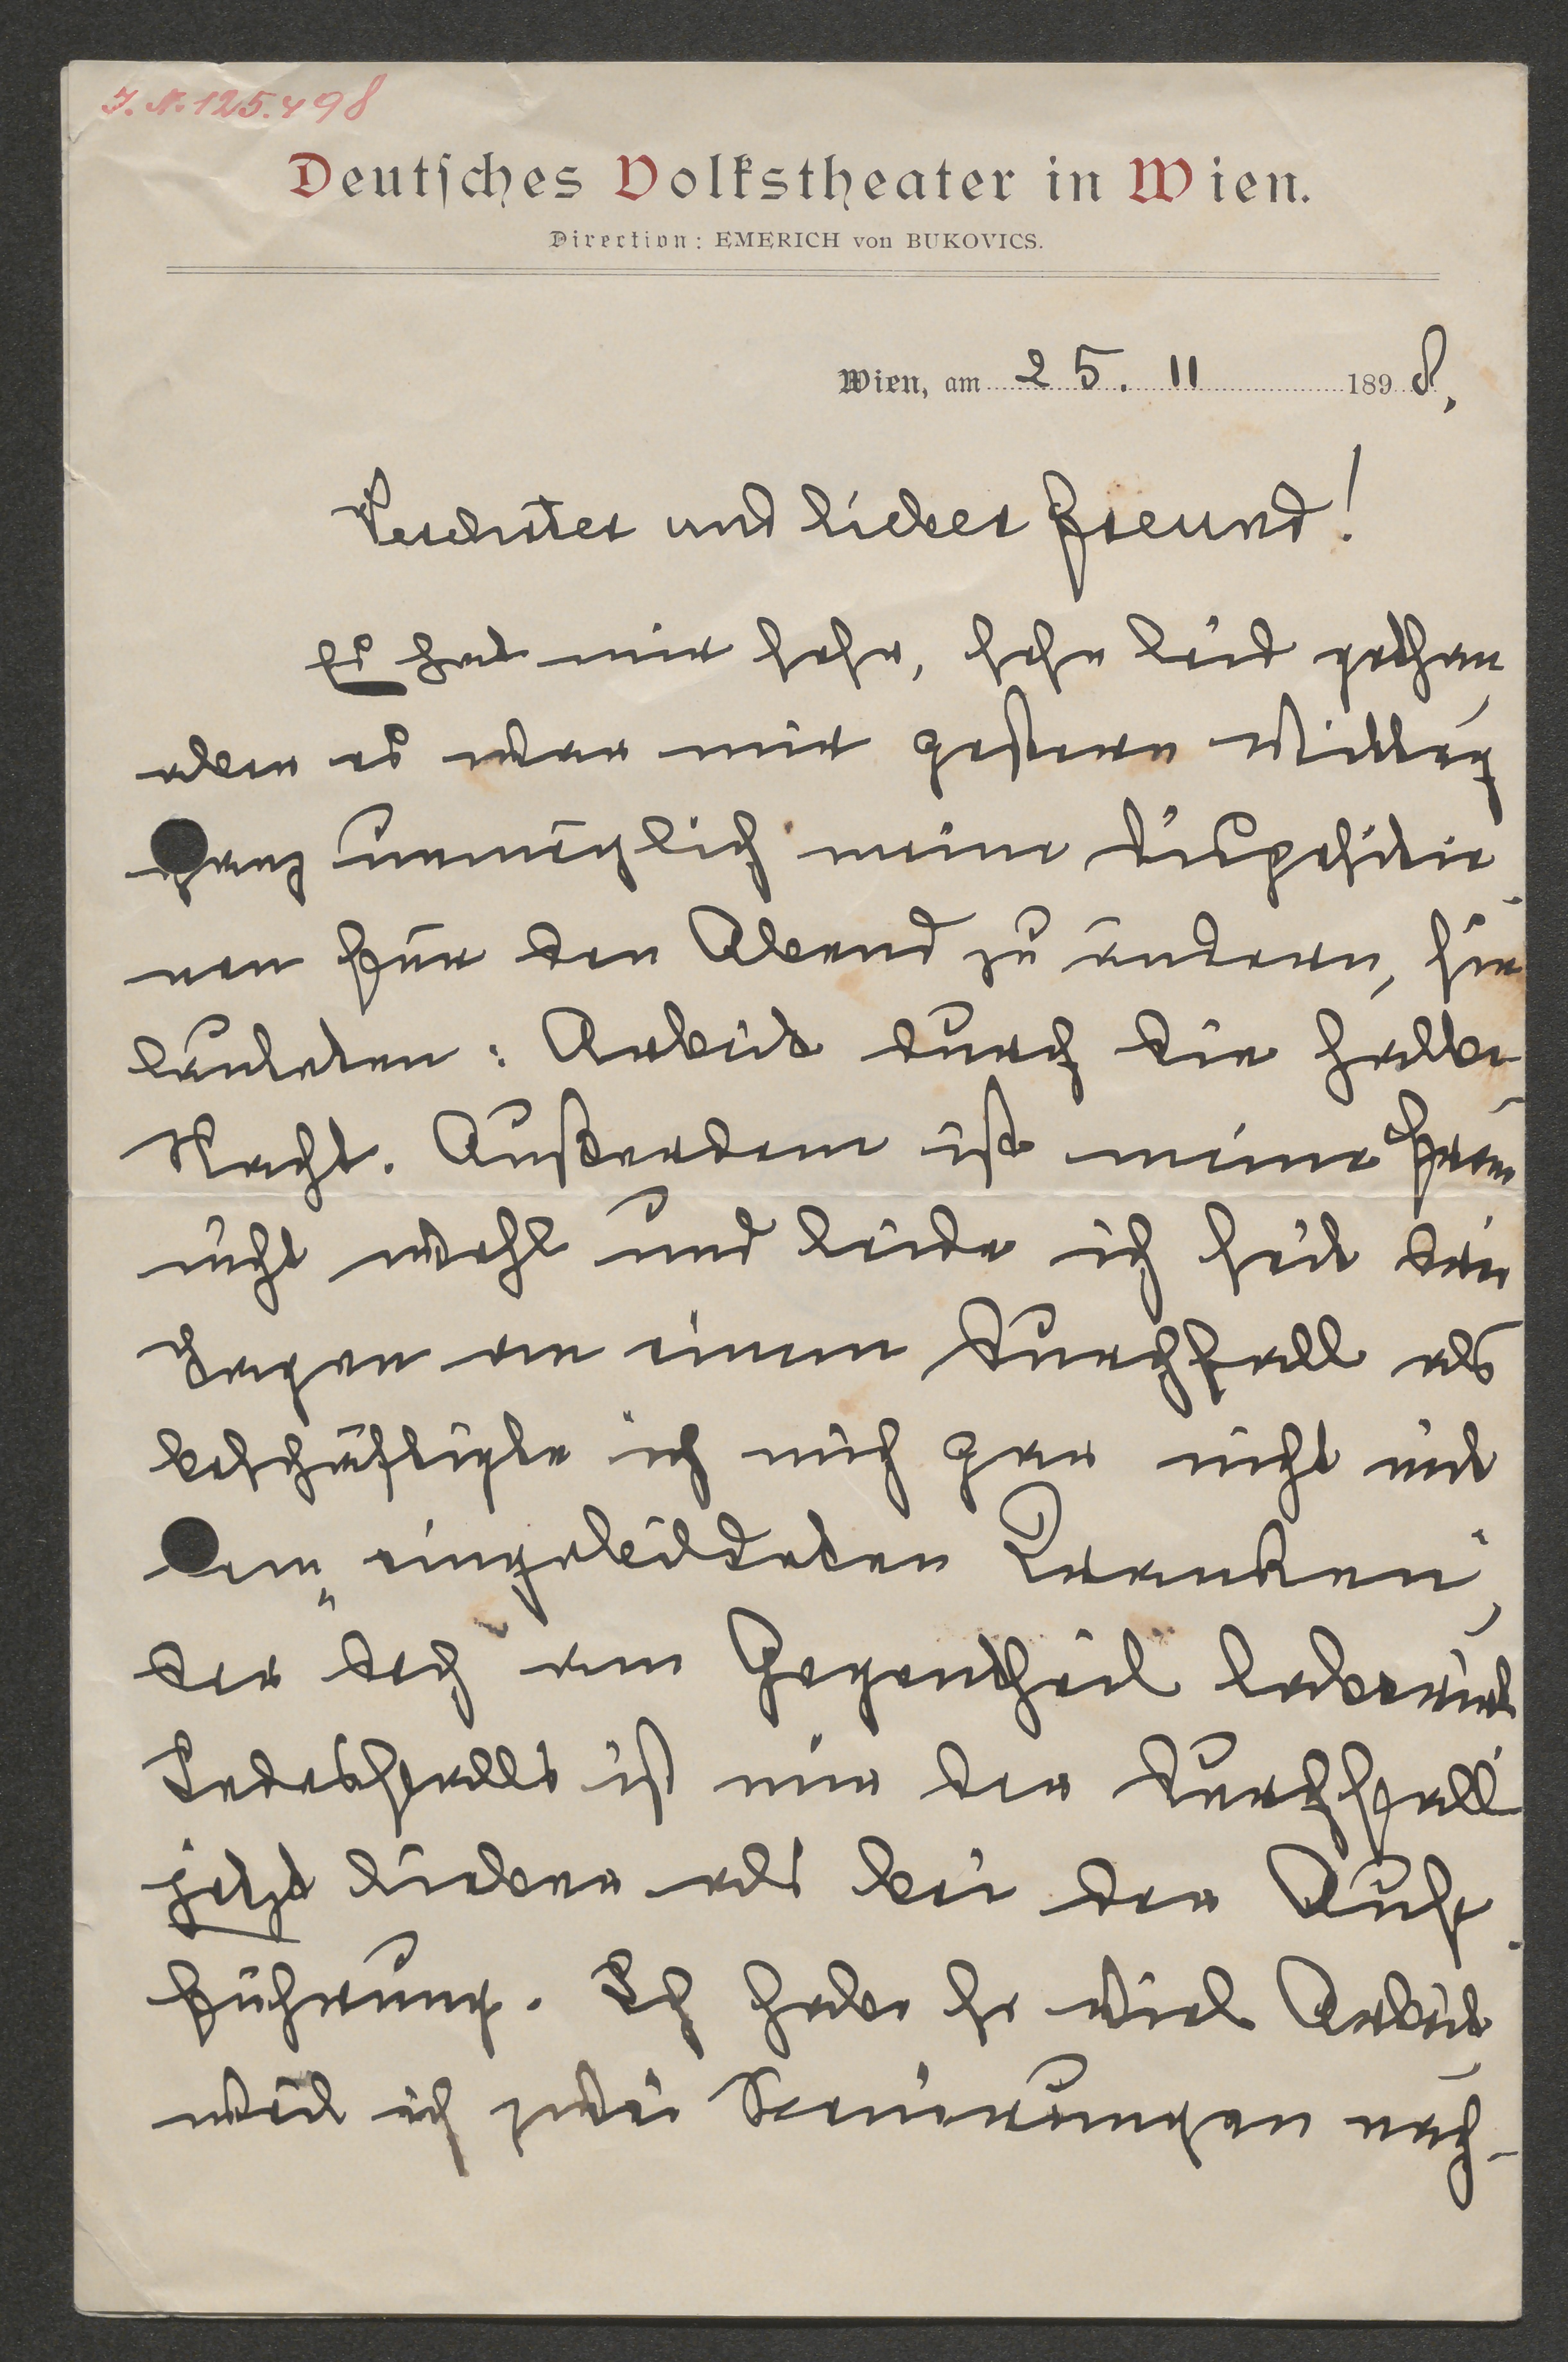 J. N. 125.498
Deutsches Volkstheater in Wien.
Direction: EMERICH von BUKOVICS.
Wien, am 25. 11 1898.
Verehrter und lieber Freund!
Es hat mir sehr, sehr leid gethan,
aber es war mir gestern Mittag
ganz unmöglich meine Dispositio-
nen für den Abend zu ändern, sie
lauteten: Arbeit durch die halbe
Nacht. Außerdem ist meine Frau
nicht wohl und leide ich seit drei
Tagen an einem Durchfall als
beschäftigte ich mich gar nicht mit
dem „eingebildeten Kranken“,
der doch am Gegentheil laborirt
Jedesfalls ist mir der Durchfall
jetzt lieber als bei der Auf-
führung. Ich habe so viel Arbeit
weil ich zwei Scenirungen nach-